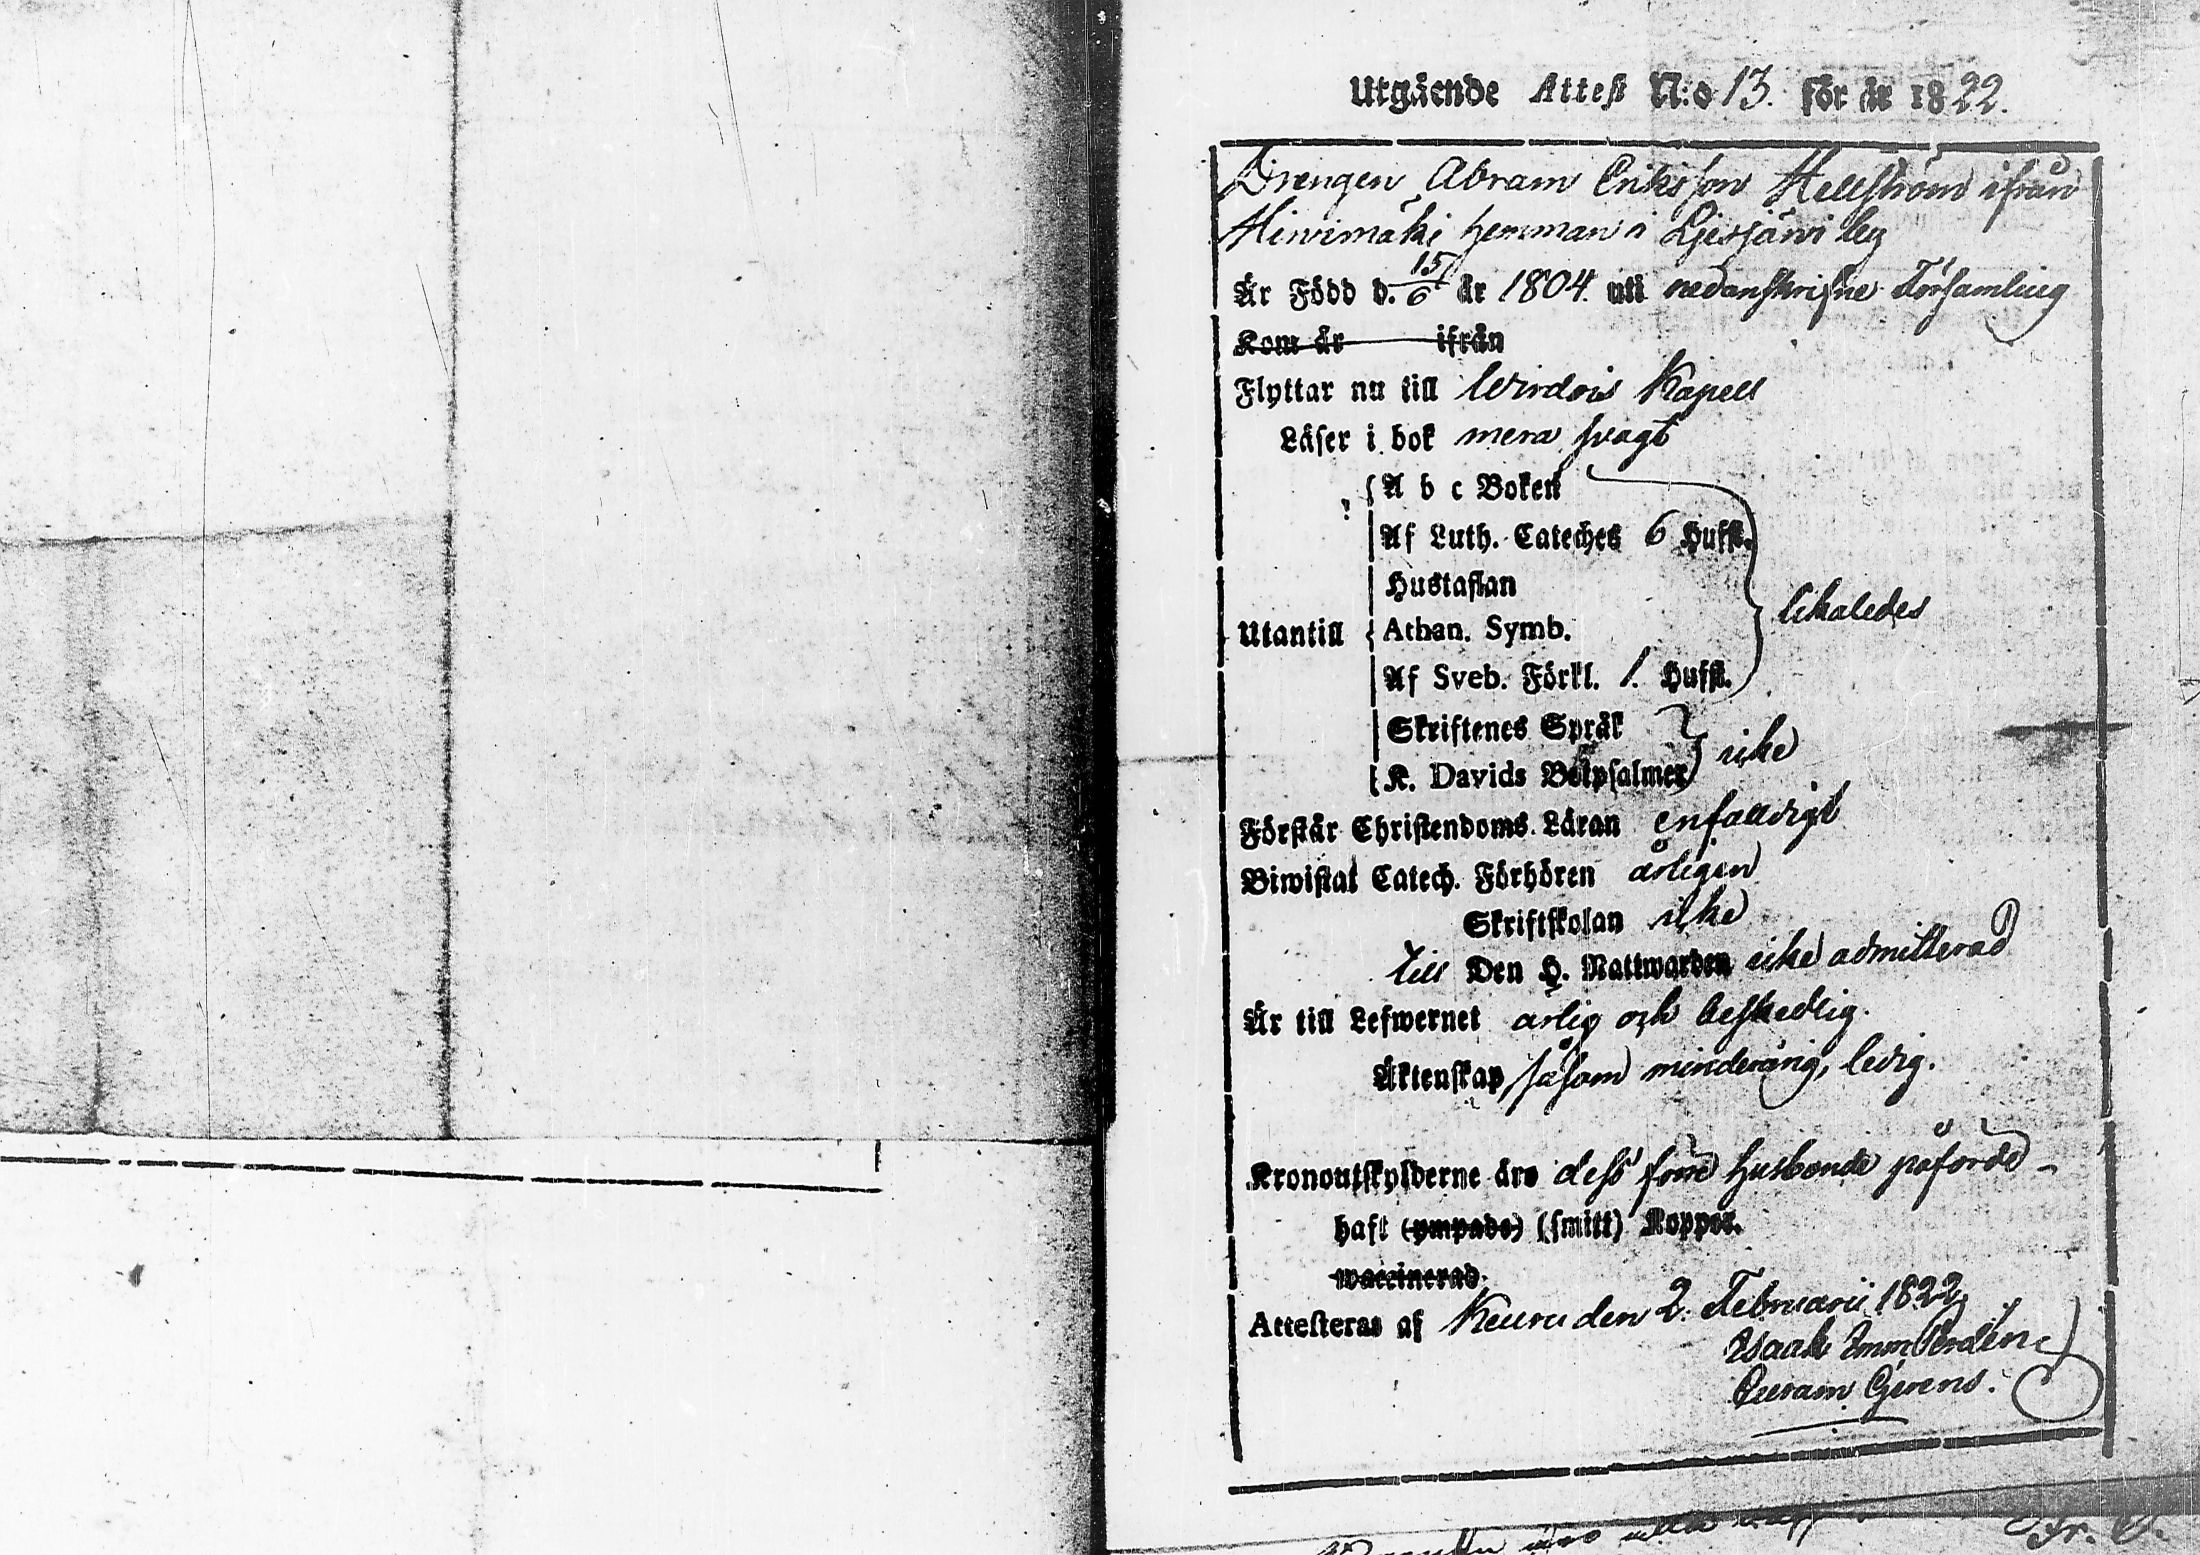 Utgående Attest N:o 13. för år 1822.
Drengen Abram Eriksson Hellström ifrån
Hirvimäki hemman i Liesjärvi by
Är Född d. 15/6 år 1804. uti nedanskrifne Församling
Kom år ifrån
Flyttar nu till Wirdois Kapell
Läser i bok mera svagt
A b c Boken
Af Luth. Cateches 6 Hufst.
Hustaflan
likaledes
Utantill Athan. Symb.
Af Sveb. Förkl. 1. Hufst.
Skriftenes Språk
icke
K. Davids Botpsalmer
Förstår Christendoms Läran enfalldigt
Biwistat Catech. Förhören årligen
Skriftskolan icke
till Den H. Nattwarden icke admitterad
Är till Lefwernet ärlig och beskedlig.
Äktenskap såsom minderårig, ledig.
Kronoutskylderne äro dess förre husbonde påförde
haft (ympade) (smitt) Koppor.
waccinerad.
Attesteras af Keuru den 2. Februarii 1822.
Isaak Eman